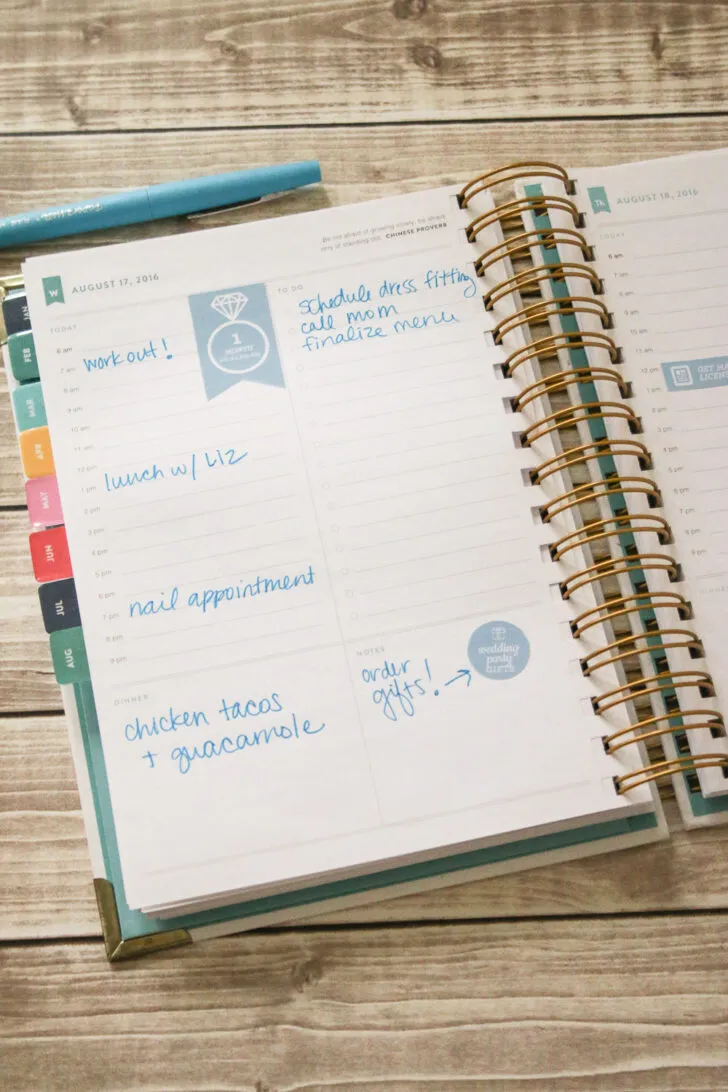 Be not afraid of growing slowly, be afraid
only of standing still. CHINESE PROVERB
W
AUGUST 17, 2016
TODAY
6 am
7 am
8 am
9 am
10 am
11 am
12 pm
1 pm
2 pm
3 pm
4 pm
5 pm
6 pm
7 pm
8 pm
9 pm
workout!
lunch w/ Liz
nail appointment
1
MONTH
TO DO
schedule dress fitting
call mom
finalize menu
DINNER
chicken tacos
+ guacamole
NOTES
order
gifts! →
wedding
party
GIFTS
JAN
FEB
MAR
APR
MAY
JUN
JUL
AUG
Th
AUGUST 18, 2016
TODAY
6 am
7 am
8 am
9 am
10 am
11 am
12 pm
GET
1 pm
2 pm
3 pm
4 pm
5 pm
6 pm
7 pm
8 pm
9 pm